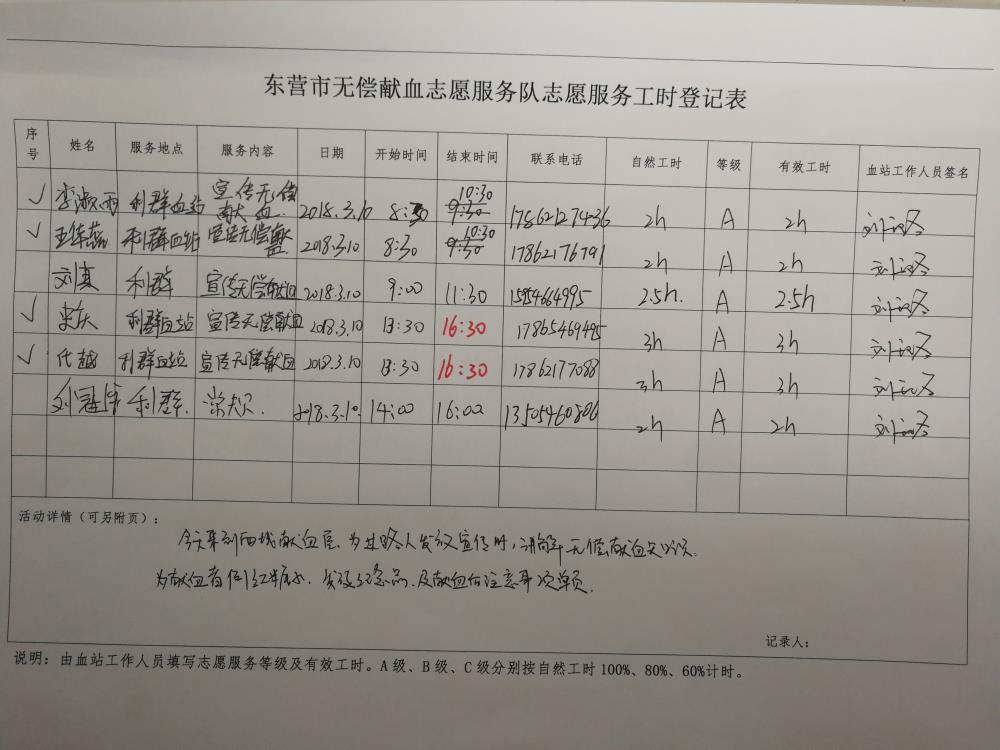 东营市无偿献血志愿服务队志愿服务工时登记表
序号 姓名 服务地点 服务内容 日期 开始时间 结束时间 联系电话 自然工时 等级 有效工时 血站工作人员签名
√ 李淑雨 利群血站 宣传无偿献血 2018.3.10 8:30 10:30 2h A 2h
√ 利群血站 宣传无偿献血 2018.3.10 8:30 10:30 17862176791 2h A 2h
利群 宣传无偿献血 2018.3.10 9:00 11:30 15954664995 2.5h. A 2.5h
√ 史庆 利群血站 宣传无偿献血 2018.3.10 13:30 16:30 17865469495 3h A 3h
√ 代越 利群血站 宣传无偿献血 2018.3.10 13:30 16:30 17862177088 3h A 3h
利群. 2018.3.10. 14:00 16:00 13505460806 2h A 2h
活动详情（可另附页）：
今天来到西城献血屋.为过路人发放宣传时,讲解无偿献血知识.
为献血者倒红糖水.发放纪念品.及献血后注意事项单页.
记录人：
说明：由血站工作人员填写志愿服务等级及有效工时。A级、B级、C级分别按自然工时100%、80%、60%计时。